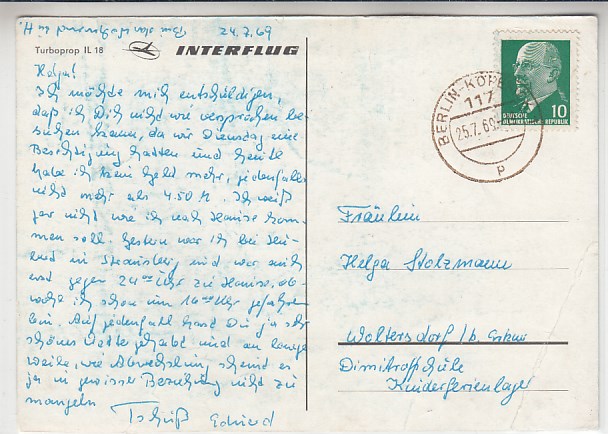 24.7.69
Turboprop IL 18 INTERFLUG
Helga!
Ich möchte mich entschuldigen,
daß ich Dich nicht wie versprochen be-
suchen kann, da wir Dienstag eine
Besichtigung hatten und heute
habe ich kein Geld mehr, jedenfalls
nicht mehr als 4.50 M. Ich weiß
gar nicht wie ich nach Hause kom-
men soll. Gestern war ich bei
und in Strausberg und war auch
erst gegen 24⁰⁰ Uhr zu Hause, ob-
wohl ich schon um 16⁰⁰ Uhr gefahren
bin. Auf jedenfall hast Du ja sehr
schönes gehabt und an lange-
weile, wie Abwechslung scheint es
ja in gewisser Beziehung nicht zu
mangeln
Tschüß
BERLIN-KÖP
117
25.7.69
p
10
DEUTSCHE
DEMOKRATISCHE REPUBLIK
Fräulein
Helga Stolzmann
Woltersdorf / b. Erkner
Dimitroffschule
Kinderferienlager